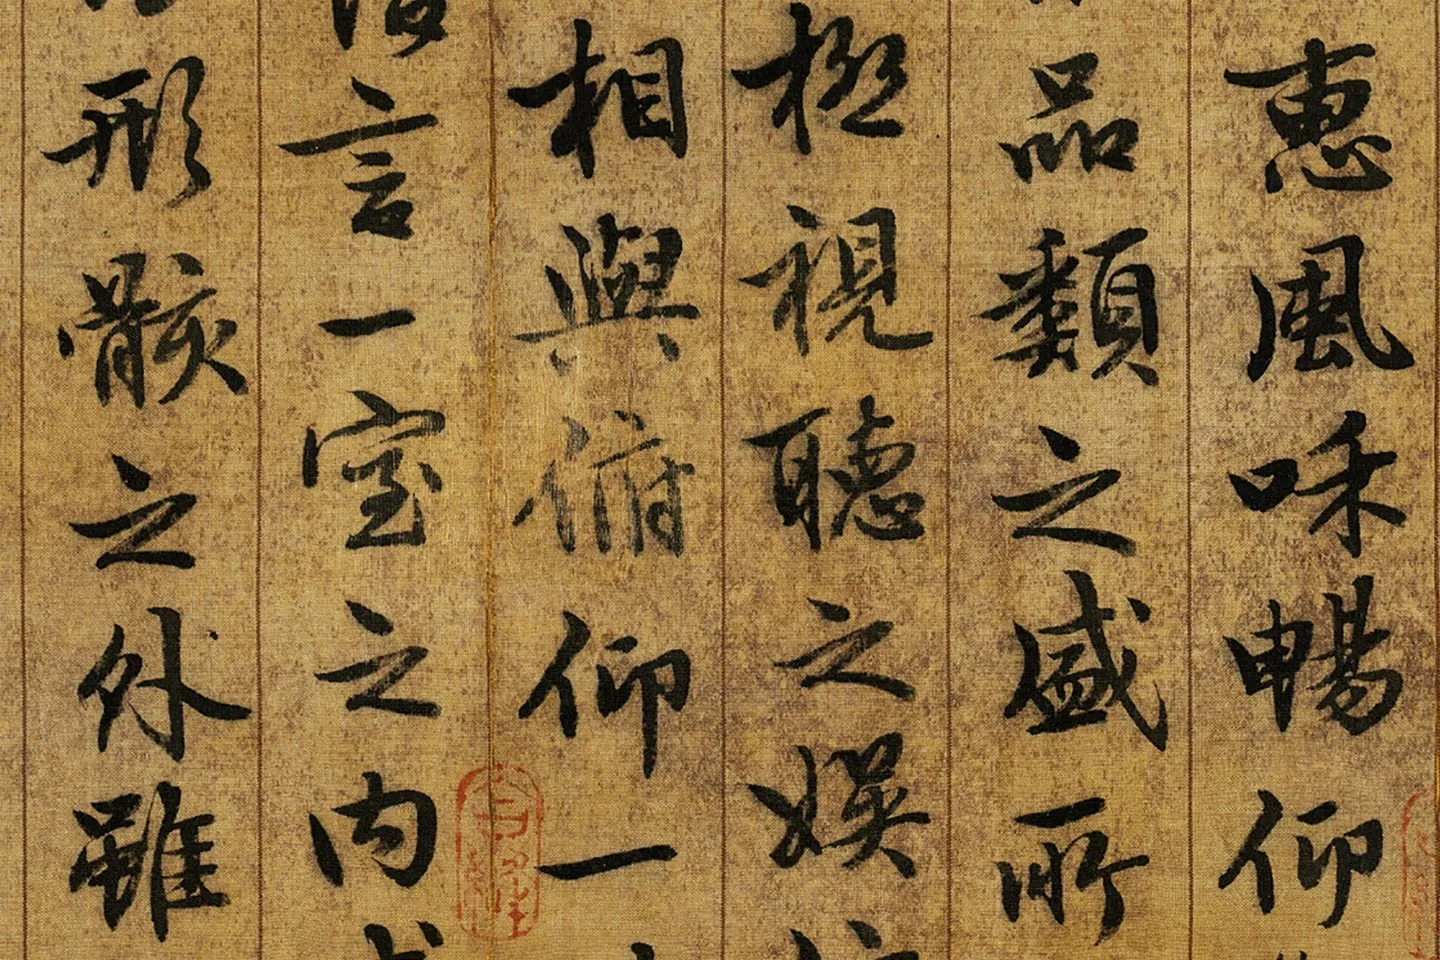 惠風和暢仰
品類之盛所
極視聽之娛信
相與俯仰一
言一室之內或
形骸之外雖